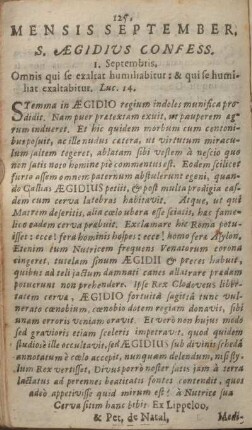 125.
MENSIS SEPTEMBER.
S. ÆGIDIUS CONFESS.
1. Septembris.
Omnis qui se exaltat humiliabitur: & qui se humi-
liat exaltabitur. Luc. 14.
Stemma in ÆGIDIO regium indoles munifica pro-
didit. Nam puer prætextam exuit, ut pauperem ag-
rum indueret. Et hic quidem morbum cum
posuit, ac ille nudus cetera, ut virtutum
lum saltem tegeret, ablatam sibi vestem à nescio quo
non satis noto homine piè commentus est. Eodem scilicet
furto assem omnem paternum abstulerunt egeni, quan-
do Gallias ÆGIDIUS petiit, & post multa prodigia eas-
dem cum cerva latebras habitavit. Atque, ut qui
Matrem deseritis, alia cælo ubera esse sciatis, hæc fame-
lico eadem cerva præbuit. Exclamare hic Roma potu-
isset: ecce! fera hominis hospes: ecce! homo feræ Asylon.
Etenim suam Nutricem frequens Venatorum corona
cingeret, tutelam sinum ÆGIDII & preces habuit,
quibus ad reti jactum damnati canes allatrare prædam
potuerunt non prehendere. Ipse Rex Clodoveus liber-
tatem cerva, ÆGIDIO fortuitâ sagittâ tunc vul-
nerato cœnobium, cœnobio dotem regiam donavit, sibi
unam erroris veniam oravit. Et verò non hujus modò
sed gravioris etiam sceleris impetravit. quod quidem
studio ille occultavit, sed ÆGIDIUS sub divini scheda
annotatum è cœlo accepit, nunquam delendum, nisi
Rex vertisset. Divus porrò noster satis jam à terra
lactatus ad perennes beatitatis fontes contendit, quos
adeo appetivisse quid mirum est? à Nutrice sua
Cerva sitim hanc bibit. Ex Lippeloo,
& Pet. de Natal.